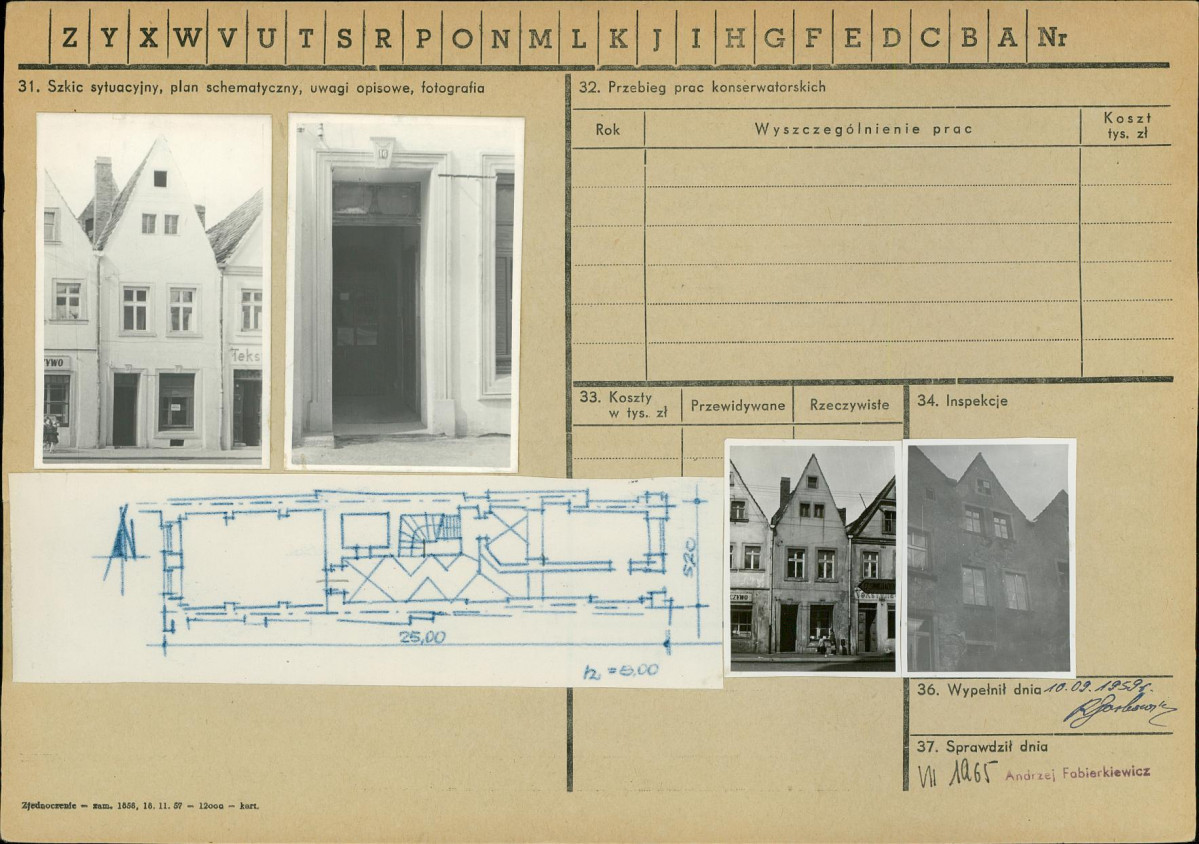 Z Y X W V U T S R P O N M L K J I H G F E D C B A Nr
31. Szkic sytuacyjny, plan schematyczny, uwagi opisowe, fotografia
32. Przebieg prac konserwatorskich
Rok
Wyszczególnienie prac
Koszt
tys. zł
33. Koszty
w tys. zł
Przewidywane
Rzeczywiste
34. Inspekcje
YWO
Teks
CZYWO
5,20
25,00
h = 8,00
36. Wypełnił dnia 10.09.1959 r.
37. Sprawdził dnia
VII 1965 Andrzej Fabierkiewicz
Zjednoczenie — zam. 1656, 16. 11. 57 — 12000 — kart.